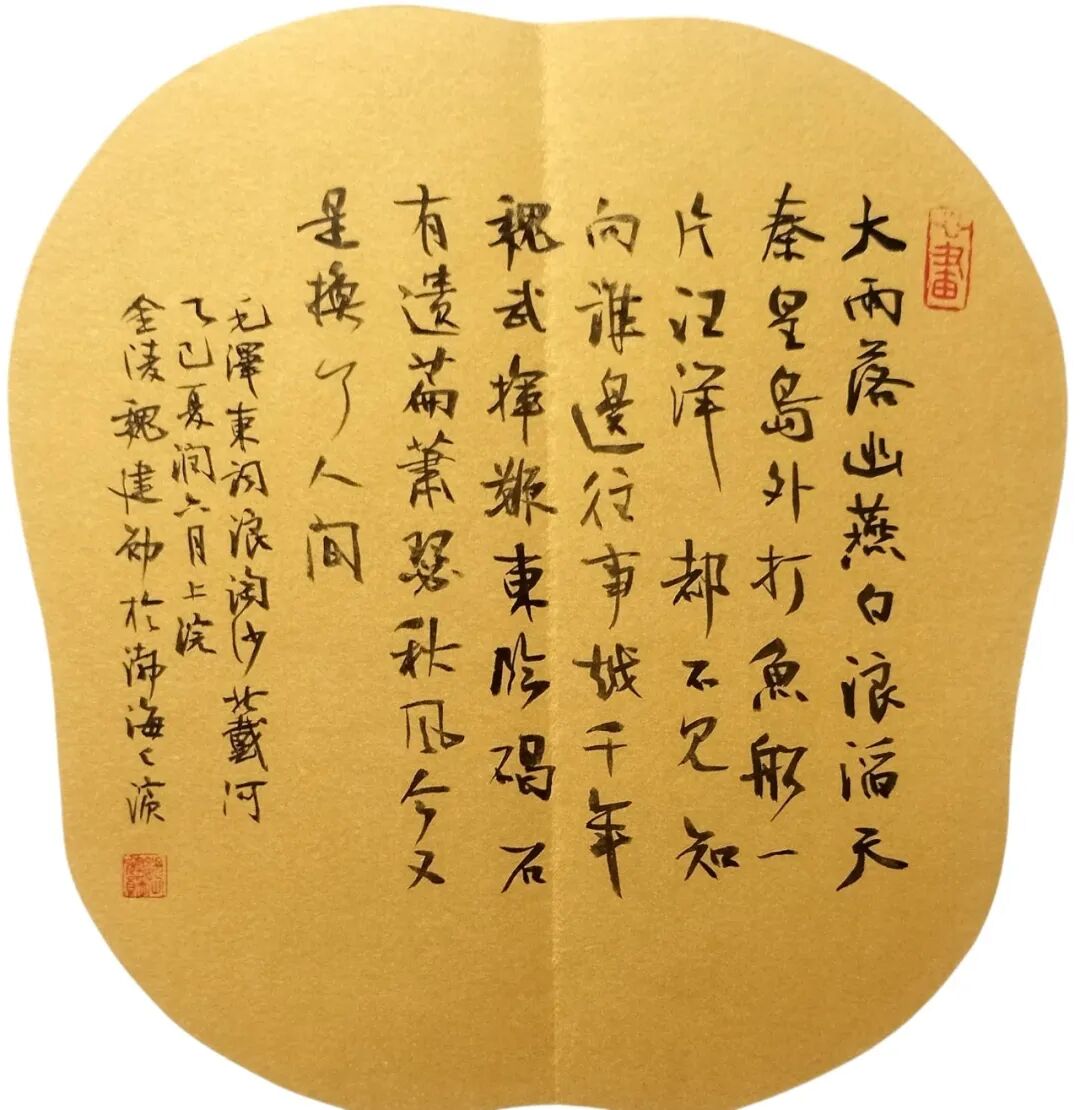 心畫
大雨落幽燕白浪滔天
秦皇島外打魚船一
片汪洋都不見知
向誰邊往事越千年
魏武揮鞭東臨碣石
有遺篇蕭瑟秋風今又
是換了人間
毛澤東詞浪淘沙北戴河
乙巳夏潤六月上浣
金陵魏建於渤海之濱